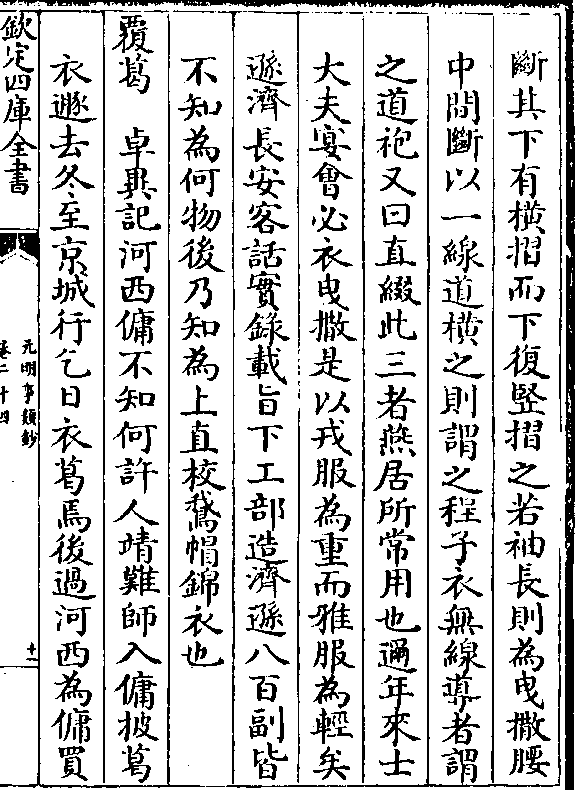 斷其下有橫摺而下復豎摺之若袖長則為曳撒腰
中間斷以一線道橫之則謂之程子衣無線導者謂
之道袍又曰直綴此三者燕居所常用也邇年來士
大夫宴會必衣曳撒是以戎服為重而雅服為輕矣
遜濟長安客話實錄載旨下工部造濟遜八百副皆
不知為何物後乃知為上直校鵞帽錦衣也
覆葛　卓異記河西傭不知何許人靖難師入傭披葛
衣遯去冬至京城行乞日衣葛焉後過河西為傭買
欽定四庫全書
元明事類鈔
卷二十四
十一